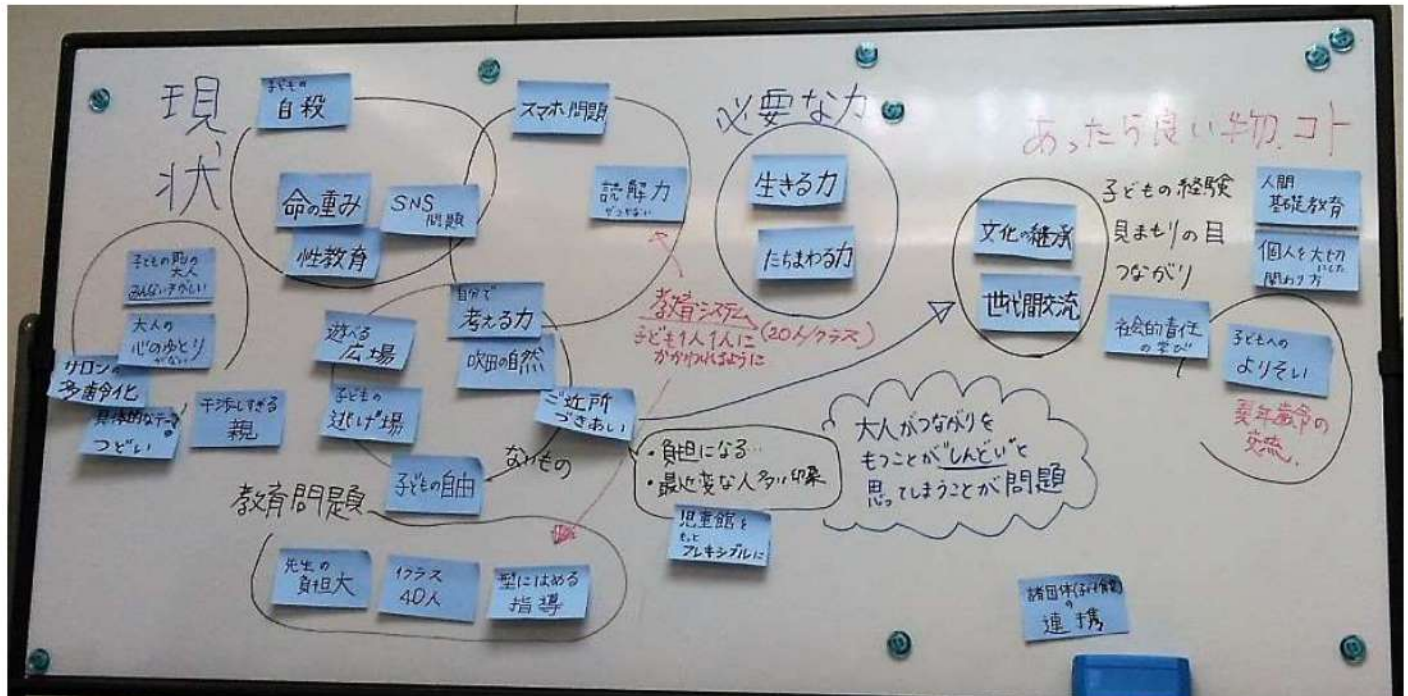 現状
子どもの
自殺
スマホ問題
命の重み
SNS
問題
性教育
読解力
がつかない
子どもの周りの
大人
みんないそがしい
大人の
心のゆとり
がない
サロンの
多齢化
具体的なテーマ
つどい
干渉しすぎる
親
遊べる
広場
自分で
考える力
吹田の自然
子どもの
逃げ場
ご近所
づきあい
子どもの自由
ないもの
教育問題
先生の
負担大
1クラス
40人
型にはめる
指導
教育システム
子ども1人1人に(20人/クラス)
かかわれるように
・負担になる…
・最近変な人多い印象
児童館を
もっと
フレキシブルに
必要な力
生きる力
たちまわる力
大人がつながりを
もつことが"しんどい"と
思ってしまうことが問題
あったら良い物、コト
文化の継承
世代間交流
子どもの経験
見まもりの目
つながり
人間
基礎教育
個人を大切
にした
関わり方
社会的責任
の学び
子どもへの
よりそい
異年齢の
交流、
諸団体(子ども食堂)
の
連携